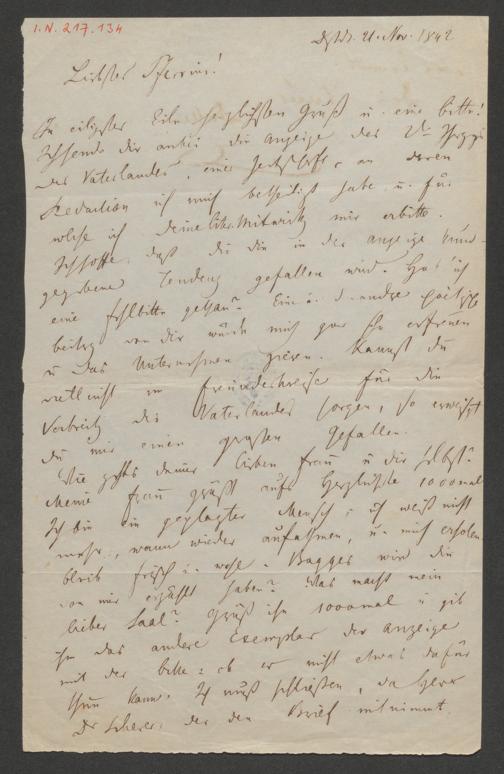 I.N. 217.134
21. Nov. 1842
Liebster Pferrins!
In eiligster Eile herzlichsten Gruß u. eine Bitte!
Ich sende dir anbei die Anzeige des
des Vaterlandes, einer Zeitschrift, an deren
Redaktion ich mich betheiligt habe u. für
welche ich deine liter. Mitwirk. mir erbitte.
Ich hoffe, daß dir die in der Anzeige kund-
gegebene Tendenz gefallen wird. Hab' ich
eine Fehlbitte gethan? Ein u. d. andre poetische
Beitrag von dir würde mich gar sehr erfreuen
u das Unternehmen zieren. Kannst du
vielleicht im Freundeskreise für die
Verbreitg des Vaterlandes sorgen, so erweisest
du mir einen großen Gefallen.
Wie gehts deiner lieben Frau u dir selbst?
Meine Frau grüßt aufs Herzlichste 1000mal
Ich bin ein geplagter Mensch; ich weiß nicht
mehr, wann wieder aufathmen, u. mich erholen
bleib frisch u. wohl. Bagges wird dir
von mir erzählt haben? Was macht mein
lieber Saal? Grüß ihn 1000mal u gib
ihm das andere Exemplar der Anzeige
mit der Bitte: ob er nicht etwas dafür
thun kann. Ich muß schließen, da Herr
Dr Scherer, der den Brief mitnimmt.